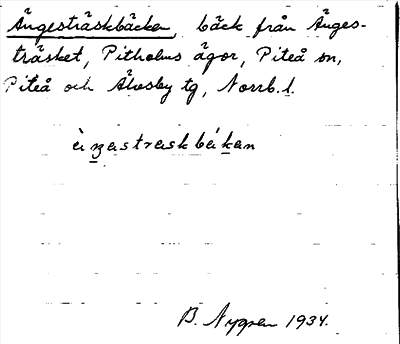 Ängesträskbäcken, bäck från Änges-
träsket, Pitholms ägor, Piteå sn,
Piteå och Älvsby tg, Norrb. l.
B. Nygren 1934.